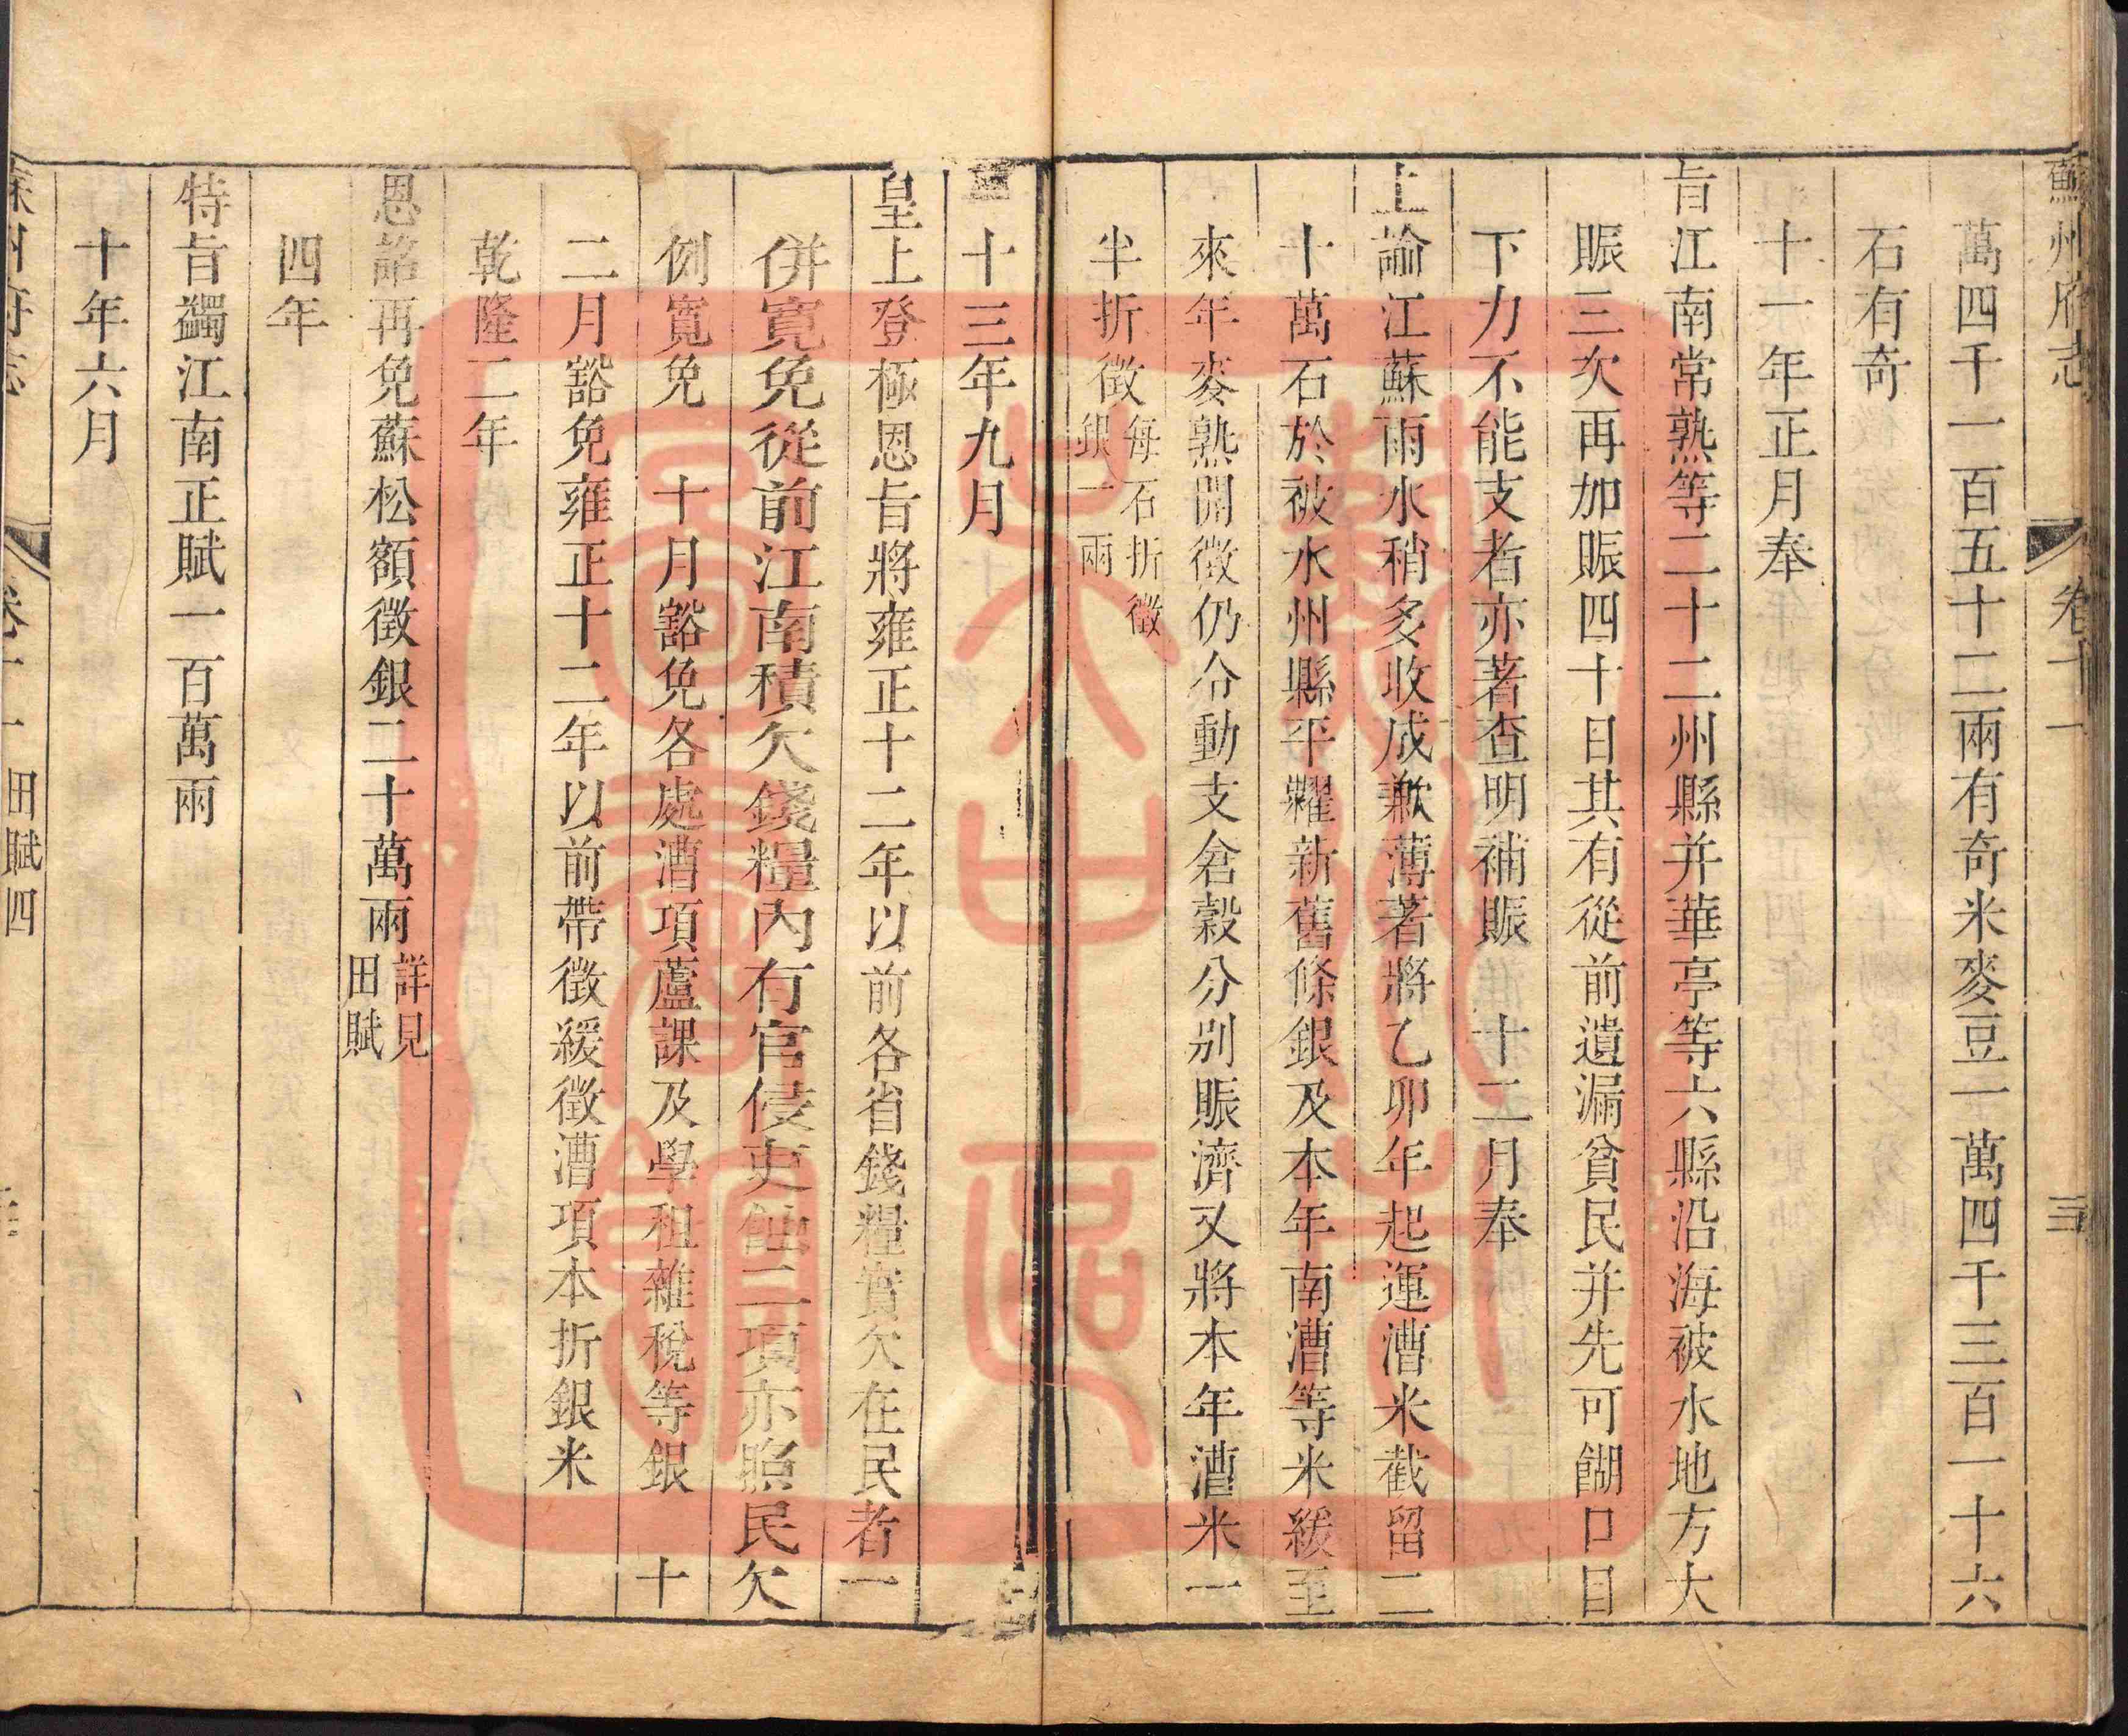 蘇州府志 卷十一 三
萬四千一百五十二兩有奇米麥豆一萬四千三百一十六
石有奇
十一年正月奉
旨江南常熟等二十二州縣并華亭等六縣沿海被水地方大
賑三次再加賑四十日其有從前遺漏貧民并先可餬口目
下力不能支者亦著查明補賑 十二月奉
上諭江蘇雨水稍多收成歉薄著將乙卯年起運漕米截留二
十萬石於被水州縣平糶新舊條銀及本年南漕等米緩至
來年麥熟開徵仍分動支倉穀分别賑濟又將本年漕米一
半折徵每石折徵銀一兩
十三年九月
皇上登極恩旨將雍正十二年以前各省錢糧實欠在民者一
併寛免從前江南積欠錢糧內有官侵吏蝕二項亦照民欠
例寬免 十月豁免各處漕項蘆課及學租雜稅等銀 十
二月豁免雍正十二年以前帶徵緩徵漕項本折銀米
乾隆二年
恩詔再免蘇松額徵銀二十萬兩詳見田賦
四年
特旨蠲江南正賦一百萬兩
十年六月
蘇州府志 卷十一 田賦四